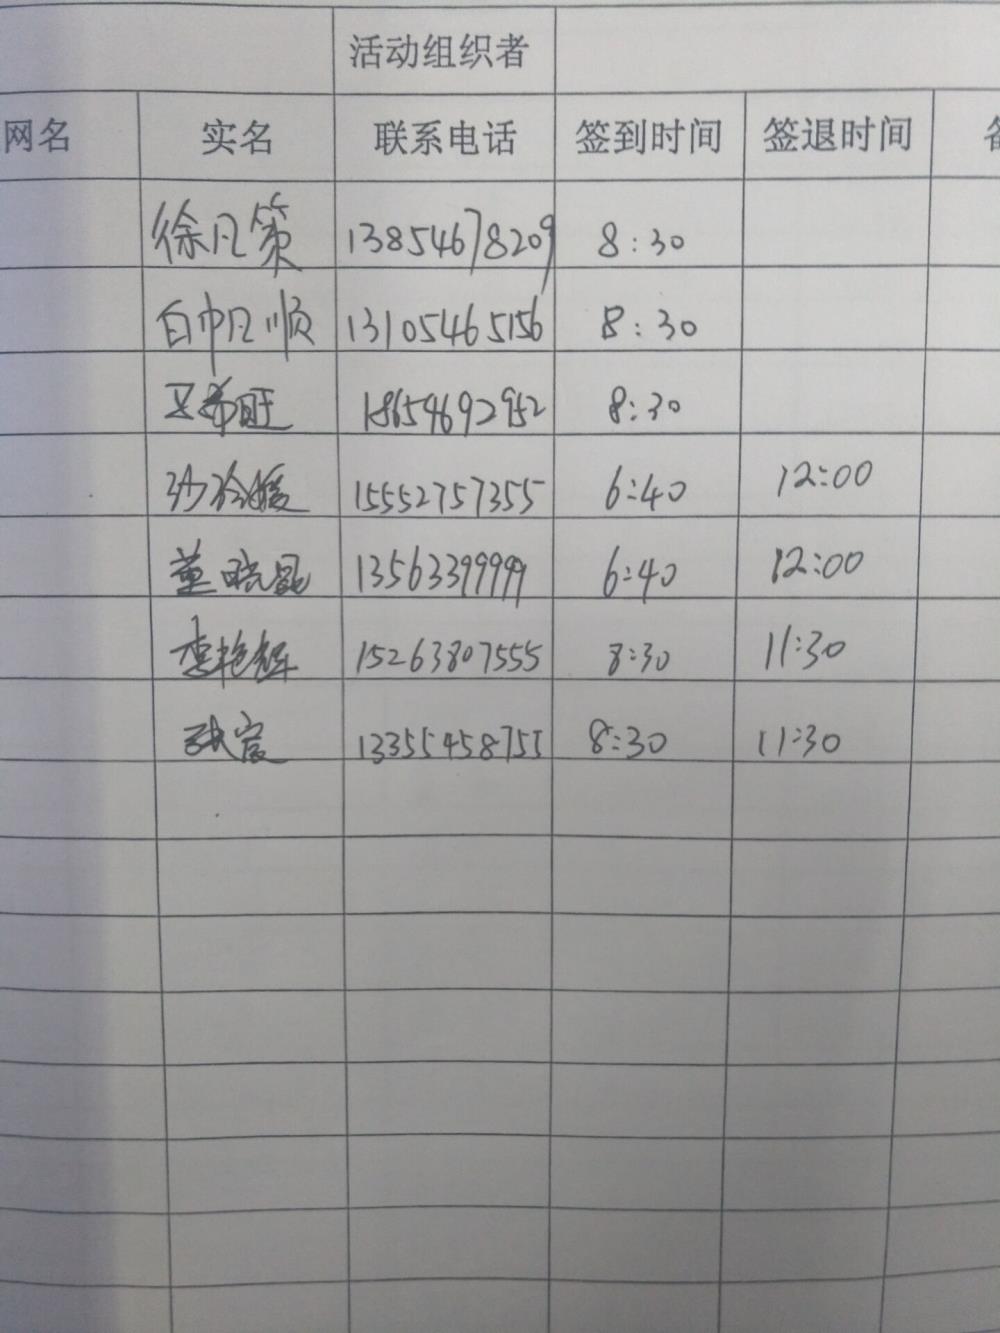 活动组织者
网名 实名 联系电话 签到时间 签退时间
徐凡策 13854678209 8:30
13105465156 8:30
18654692952 8:30
15552757355 6:40 12:00
董晓昆 13563399999 6:40 12:00
李艳辉 15263807555 8:30 11:30
13355458755 8:30 11:30